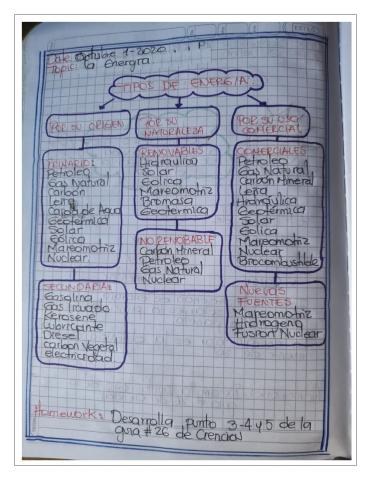 Date: Octubre 1-2020.
Topic: la Energia
TIPOS DE ENERGIA
POR SU ORIGEN
PRIMARIO:
Petroleo
Gas Natural
Carbón
Leña
Caida de Agua
Geotermica
Solar
Eolica
Mareomotriz
Nuclear
SECUNDARIA:
Gasolina
Gas licuado
Kerosene
Lubricante
Diesel
carbon Vegetal
electricidad
POR SU
NATURALEZA
RENOVABLES
Hidraulica
Solar
Eolica
Mareomotriz
Biomasa
Geotermica
NO RENOBABLE
Carbon Mineral
Petroleo
Gas Natural
Nuclear
POR SU USO
COMERCIAL
COMERCIALES
Petroleo
Gas Natural
Carbon Mineral
Leña
Hidraulica
Geotermica
Solar
Eolica
Mareomotriz
Nuclear
Biocombustible
NUEVAS
FUENTES
Mapeomotriz
Hidrogeno
Fusion Nuclear
Homework: Desarrolla punto 3-4 y 5 de la
guia #26 de Ciencias